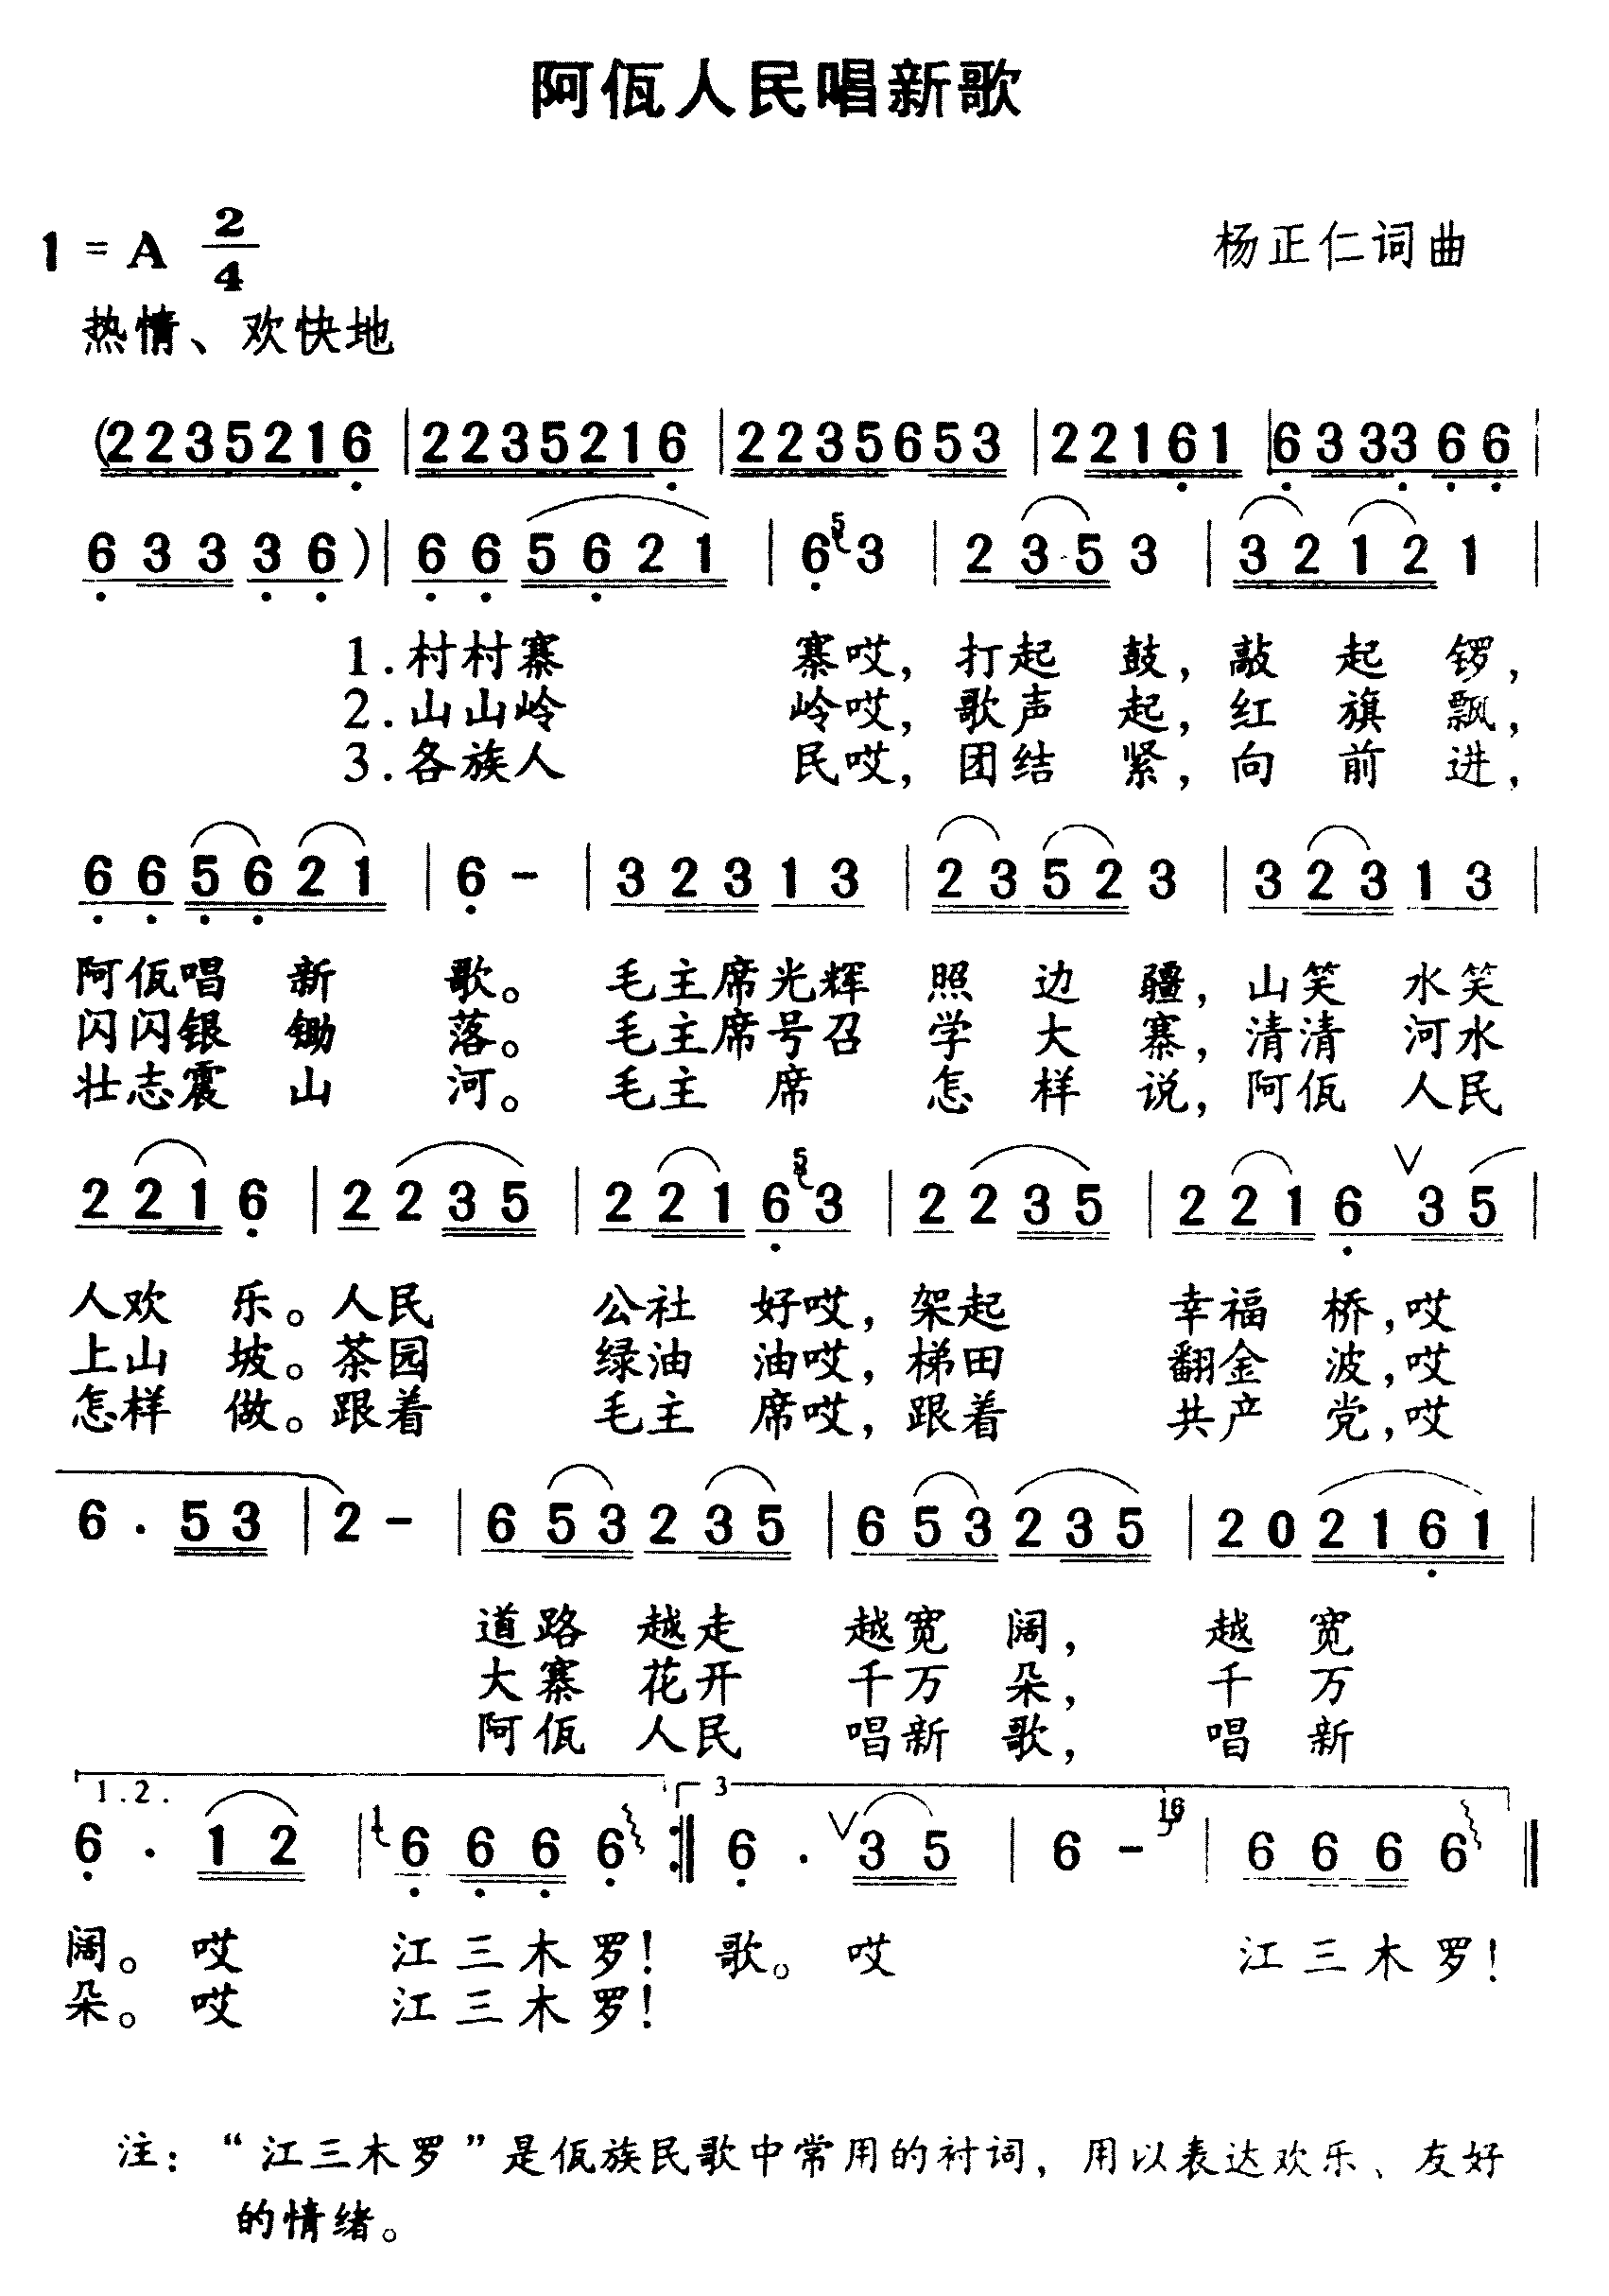 阿佤人民唱新歌
1 = A 2/4
杨正仁词曲
热情、欢快地
(2235216 | 2235216 | 2235653 | 22161 | 633366 |
63336) | 665621 | 6 5 3 | 2353 | 32121 |
1.村村寨 寨哎，打起 鼓，敲 起 锣，
2.山山岭 岭哎，歌声 起，红 旗 飘，
3.各族人 民哎，团结 紧，向 前 进，
665621 | 6 - | 32313 | 23523 | 32313 |
阿佤唱 新 歌。 毛主席光辉 照 边 疆，山笑 水笑
闪闪银 锄 落。 毛主席号召 学 大 寨，清清 河水
壮志震 山 河。 毛主 席 怎 样 说，阿佤 人民
2216 | 2235 | 2216 5 3 | 2235 | 2216 ∨ 35 |
人欢 乐。人民 公社 好哎，架起 幸福 桥，哎
上山 坡。茶园 绿油 油哎，梯田 翻金 波，哎
怎样 做。跟着 毛主 席哎，跟着 共产 党，哎
6 · 53 | 2 - | 653235 | 653235 | 202161 |
道路 越走 越宽 阔， 越 宽
大寨 花开 千万 朵， 千 万
阿佤 人民 唱新 歌， 唱 新
1.2. 3
6 · 12 | 1 6666 :‖ 6 · ∨ 35 | 6 - 16 | 6666 ‖
阔。 哎 江三木罗！ 歌。 哎 江三木罗！
朵。 哎 江三木罗！
注：“江三木罗”是佤族民歌中常用的衬词，用以表达欢乐、友好
的情绪。